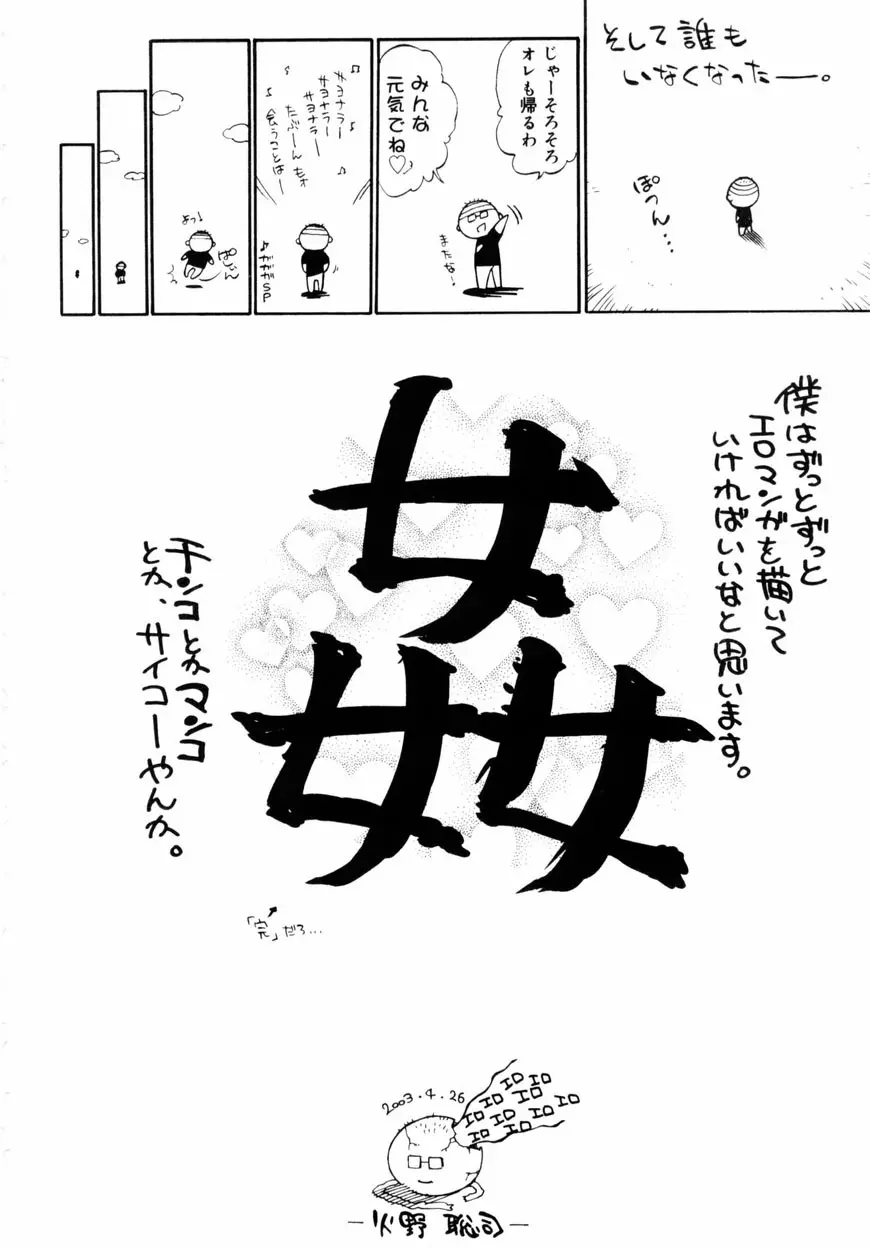 そして誰も
いなくなったー。
ぽつん…
じゃーそろそろ
オレも帰るわ
みんな
元気でね♡
またなー
♪サヨナラー
サヨナラー♪
たぶーんもォ♪
♪会うことはー
♪ガガガSP
よっ♪
ぱしん
僕はずっとずっと
エロマンガを描いて
いければいいなと思います。
姦
チンコとかマンコ
とか、サイコーやんか。
「完」だろ…
2003.4.26
エロ エロ
エロ エロ
エロ エロ エロ
エロ エロ
—火野 聡司—